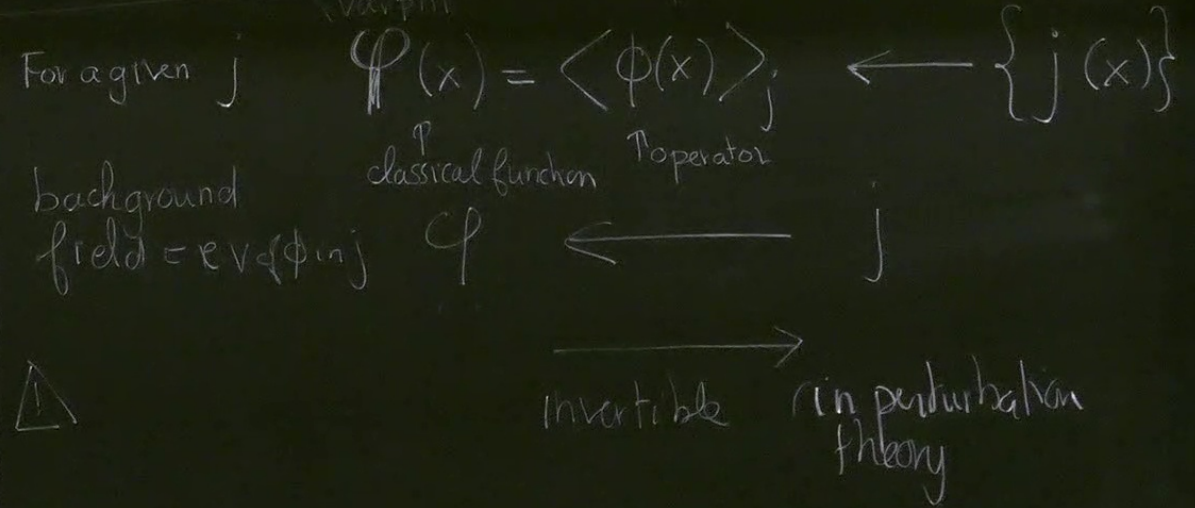 \varphi
For a given j φ(x) = <ϕ(x)>_j ← {j(x)}
↑ classical function ↑ operator
background
field = ev of ϕ in j φ ← j
→
⚠ invertible (in perturbation
theory